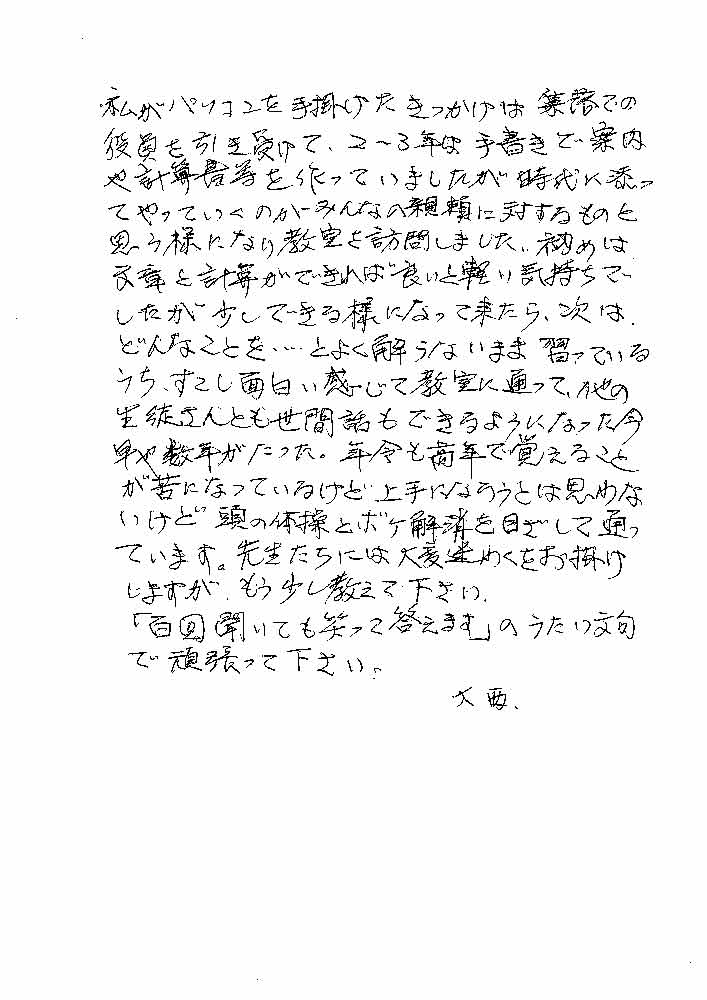 私がパソコンを手掛けたきっかけは集落での
役員を引き受けて、2〜3年は手書きで案内
や計算書等を作っていましたが時代に添っ
てやっていくのがみんなの親頼に対するものと
思う様になり教室を訪問しました。初めは
文章と計算ができれば良いと軽い気持ちで
したが少しできる様になって来たら、次は
どんなことを…とよく解らないまま習っている
うち、すこし面白い感じて教室に通って、他の
生徒さんとも世間話もできるようになった今
早や数年がたった。年令も高年で覚えること
が苦になっているけど上手になろうとは思わな
いけど頭の体操とボケ解消を目ざして通っ
ています。先生たちには大変迷わくをお掛け
しますが、もう少し教えて下さい。
「百回聞いても笑って答えます」のうたい文句
で頑張って下さい。
大西、